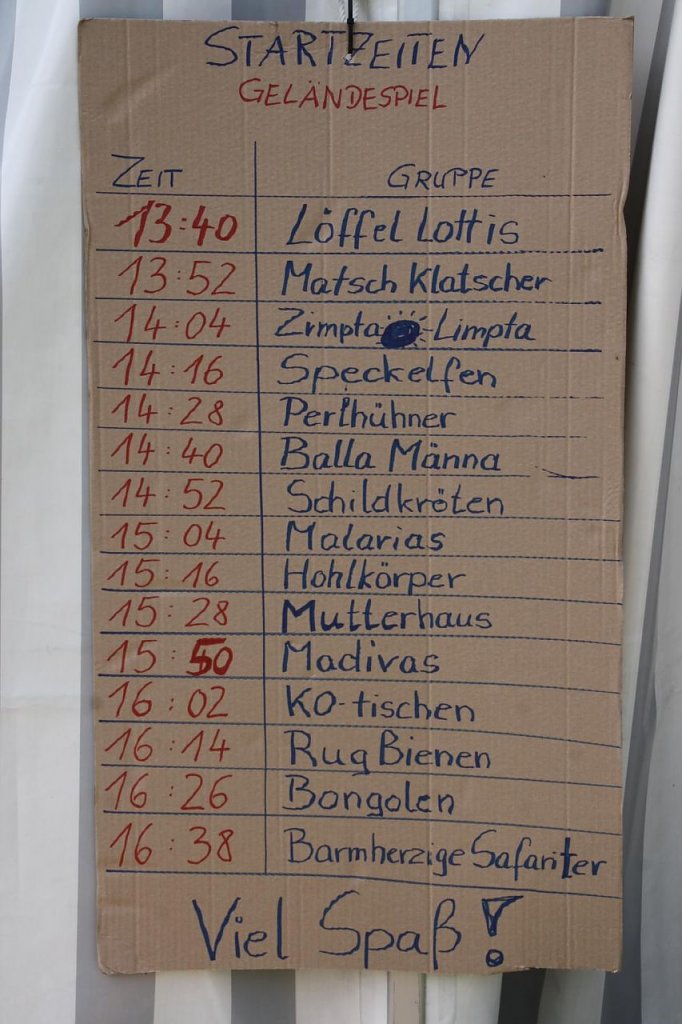 STARTZEITEN
GELÄNDESPIEL
ZEIT GRUPPE
13:40 Löffel Lottis
13:52 Matsch Klatscher
14:04 Zimpta-Limpta
14:16 Speckelfen
14:28 Perlhühner
14:40 Balla Männa
14:52 Schildkröten
15:04 Malarias
15:16 Hohlkörper
15:28 Mutterhaus
15:50 Madivas
16:02 KO-tischen
16:14 Rug Bienen
16:26 Bongolen
16:38 Barmherzige Safariter
Viel Spaß!